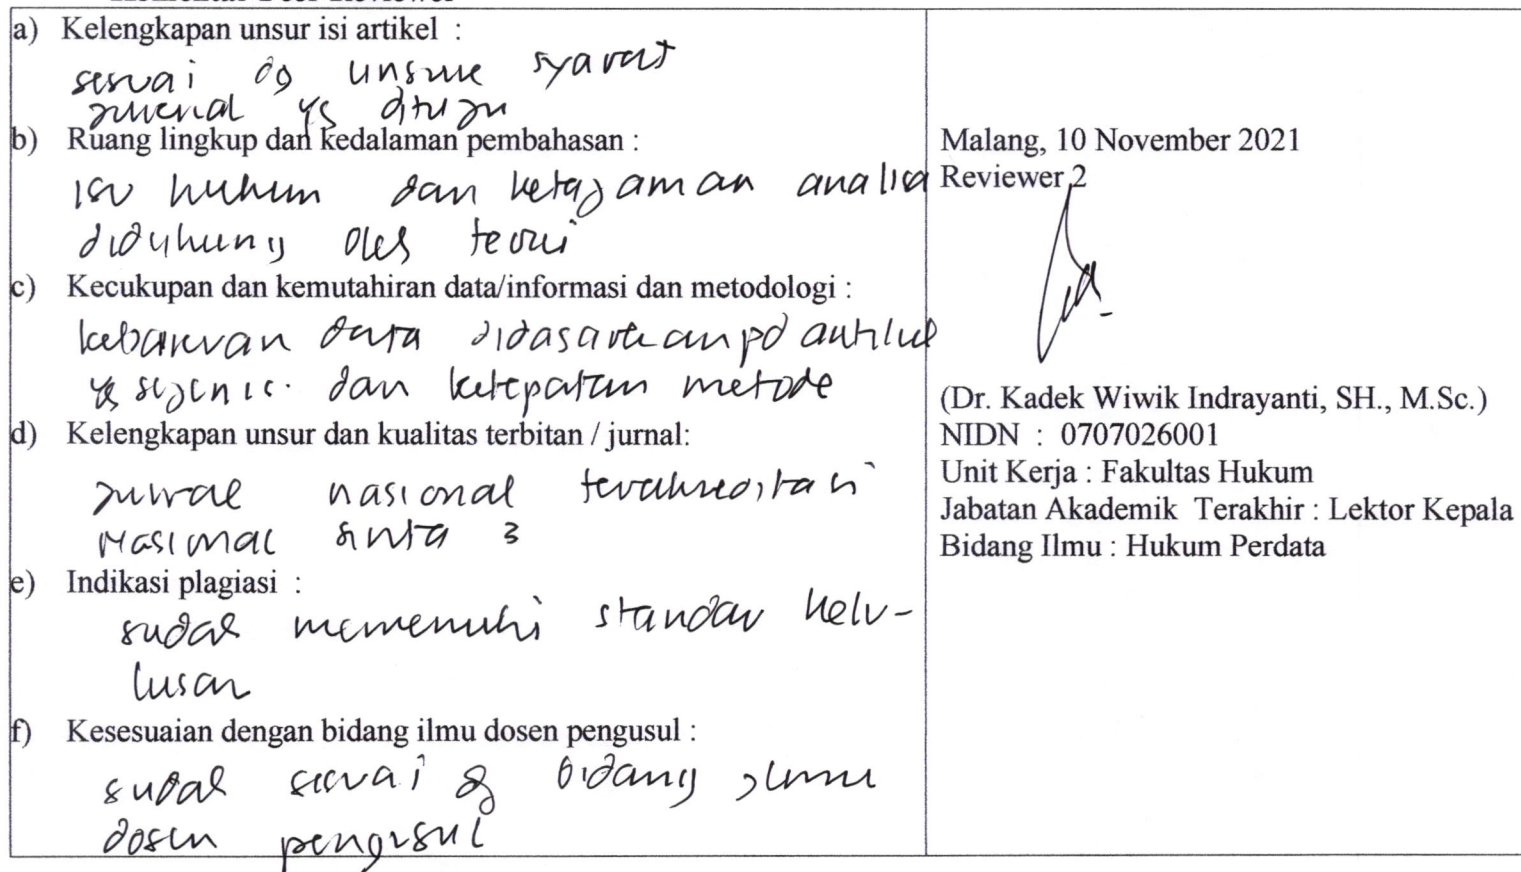 a) Kelengkapan unsur isi artikel :
sesuai dg unsur syarat
jurnal yg dituju
b) Ruang lingkup dan kedalaman pembahasan :
isu hukum dan ketajaman analisa
didukung oleh teori
c) Kecukupan dan kemutahiran data/informasi dan metodologi :
kebaruan data didasarkan pd artikel
yg sejenis. dan ketepatan metode
d) Kelengkapan unsur dan kualitas terbitan / jurnal:
jurnal nasional terakreditasi
Nasional sinta 3
e) Indikasi plagiasi :
sudah memenuhi standar kelu-
lusan
f) Kesesuaian dengan bidang ilmu dosen pengusul :
sudah sesuai dg bidang ilmu
dosen pengusul
Malang, 10 November 2021
Reviewer 2
(Dr. Kadek Wiwik Indrayanti, SH., M.Sc.)
NIDN : 0707026001
Unit Kerja : Fakultas Hukum
Jabatan Akademik Terakhir : Lektor Kepala
Bidang Ilmu : Hukum Perdata